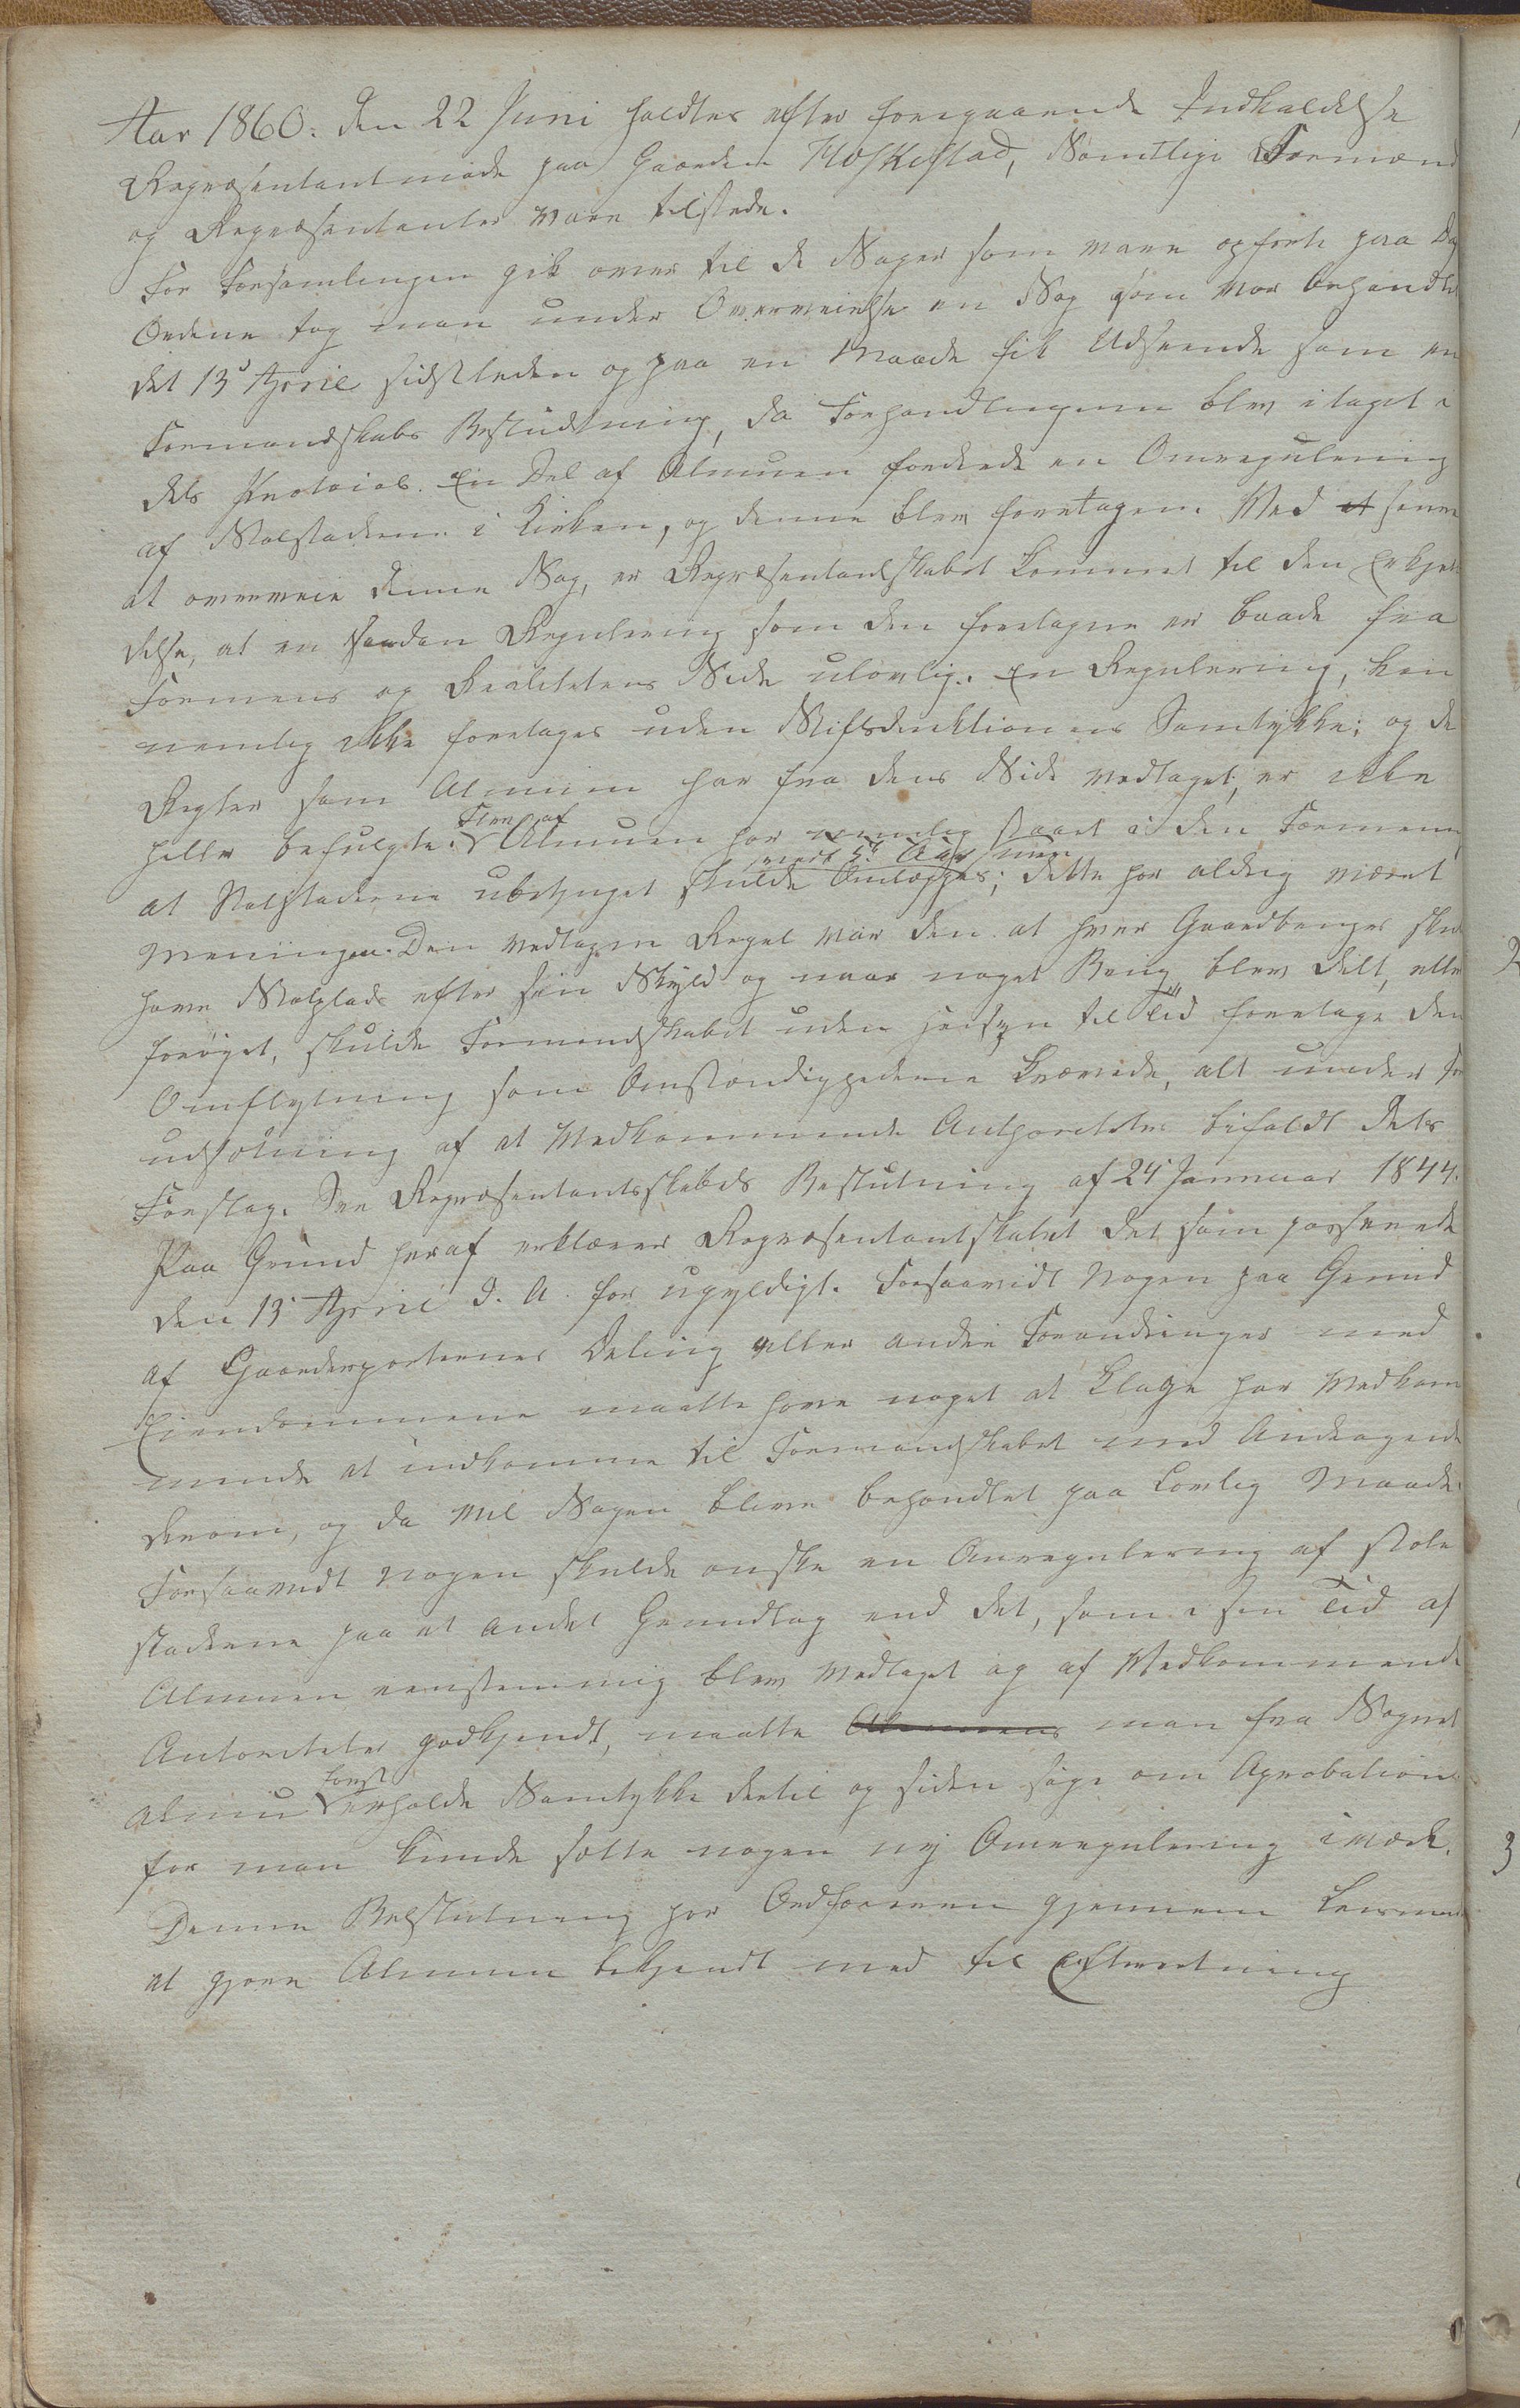 Aar 1860. den 22 Juni holdtes efter foregaaende Indkaldelse
Repræsentantmøde paa Gaarden Høskestad, Samtlige Formænd
og Repræsentanter vare tilstede.
Før Forsamlingen gik over til de Sager som vare opførte paa Dag
Ordenen tog man under Overveielse en Sag som var behandlet
det 13de April sidstleden og paa en Maade fik Udseende som en
Formandskabs Beslutning, da Forhandlingerne blev itaget i
dets Protocol. En Del af Almuen forderede en Omregulering
af Stolstaderne i Kirken, og denne blev foretagen. Ved et senere
at overveie denne Sag, er Repræsentantskabet kommet til den Erkjen
delse, at en saadan Regulering som den foretagne er baade fra
Formens og Realitetens Side ulovlig. En Regulering, kan
nemlig ikke foretages uden Stiftsdirektionens Samtykke; og de
Regler som Almuen har fra dens Side vedtaget, er ikke
heller befulgte. Flere af Almuen har nemlig staaet i den Formening
at Stolstaderne ubetinget hvert 5te Aar skulde Omlægges; men dette har aldrig været
Meningen. Den vedtagne Regel var den at hver Gaardbruger skul
have Stolplads efter sin Skyld og naar noget Brug blev delt, eller
forøget, skulde Formandskabet uden Hensyn til Tid foretage den
Omflytning som Omstændighederne krævede, alt under For
udsætning af at Vedkommende Authoriteter bifaldt dets
Forslag. See Repræsentantskabets Beslutning af 24 Januar 1844.
Paa Grund heraf erklærer Repræsentantskabet det som passerede
den 13 April d. A. for ugyldigt. Forsaavidt Nogen paa Grund
af Gaardeparternes Deling eller andre Forandringer med
Eiendommene maatte have noget at klage har Vedkom
mende at indkomme til Formandskabet med Andragende
derom, og da vil Sagen blive behandlet paa Lovlig Maade.
Forsaavidt nogen skulde ønske en Omregulering af Stole
staderne paa et andet Grundlag end det, som i sin Tid af
Almuen eenstemmig blev Vedtaget og af Vedkommende
Autoriteter godkjendt, maatte Almuens man fra Sognets
Almue først erholde Samtykke dertil og siden søge om Aprobation
før man kunde sætte nogen ny Omregulering iværk.
Denne Beslutning har Ordføreren gjennem Lensmand
at gjøre Almuen bekjendt med til Efterretning